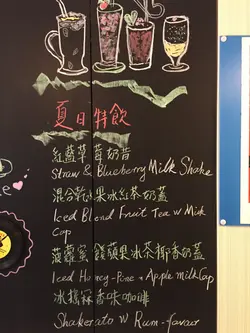 夏日特飲
紅藍草莓奶昔
Straw & Blueberry Milk Shake
混合乾果冰紅茶奶蓋
Iced Blend Fruit Tea w Milk
Cap
菠蘿蜜餞蘋果冰茶椰香奶蓋
Iced Honey-Pine & Apple milk Cap
冰搖 香味咖啡
Shakerato w Rum-favor